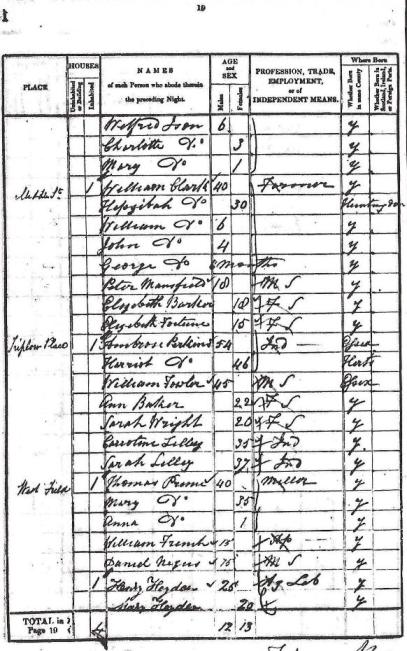 19
PLACE
HOUSES
Uninhabited or Building
Inhabited
NAMES of each Person who abode therein the preceding Night.
AGE and SEX
Males
Females
PROFESSION, TRADE, EMPLOYMENT, or of INDEPENDENT MEANS.
Where Born
Whether Born in same County
Whether Born in Scotland, Ireland, or Foreign Parts.
Wilfred Ison 6 y
Charlotte Do 3 y
Mary Do 1 y
1 William Clark 40 Farmer y
Hepzibah Do 30
William Do 6 y
John Do 4 y
George Do months y
Peter Mansfield 18 M S y
Elizabeth Barker 18 F S y
Elizabeth Fortune 15 F S y
Triplow Place 1 Ambrose Perkins 54 Ind Essex
Harriot Do 46 Herts
William Fowler 45 M S Essex
Ann Baker 22 F S y
Sarah Wright 20 F S y
Caroline Lilley 35 Ind y
Sarah Lilley 37 Ind y
West Field 1 Thomas Prime 40 Miller y
Mary Do 35 y
Anna Do 1 y
William French 15 Ap y
Daniel Negus 75 M S y
1 Henry Hayden 25 Ag Lab y
Mary Hayden 20 y
TOTAL in Page 19 4 12 13